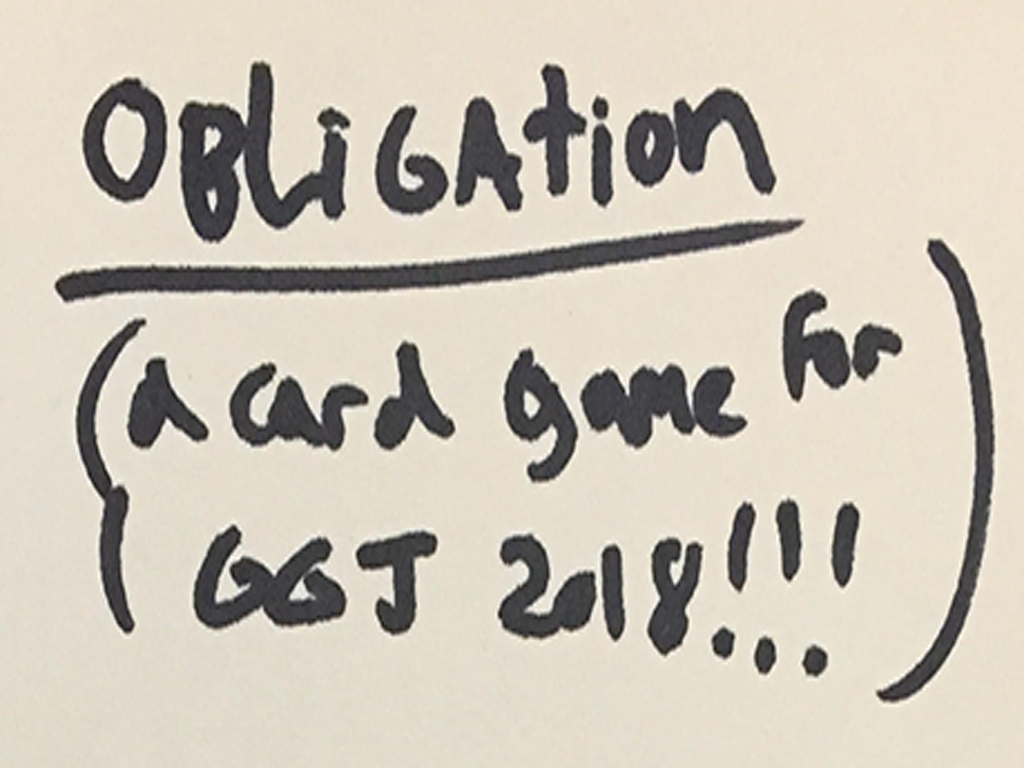 OBLiGATion
(a card game for
GGJ 2018!!!)